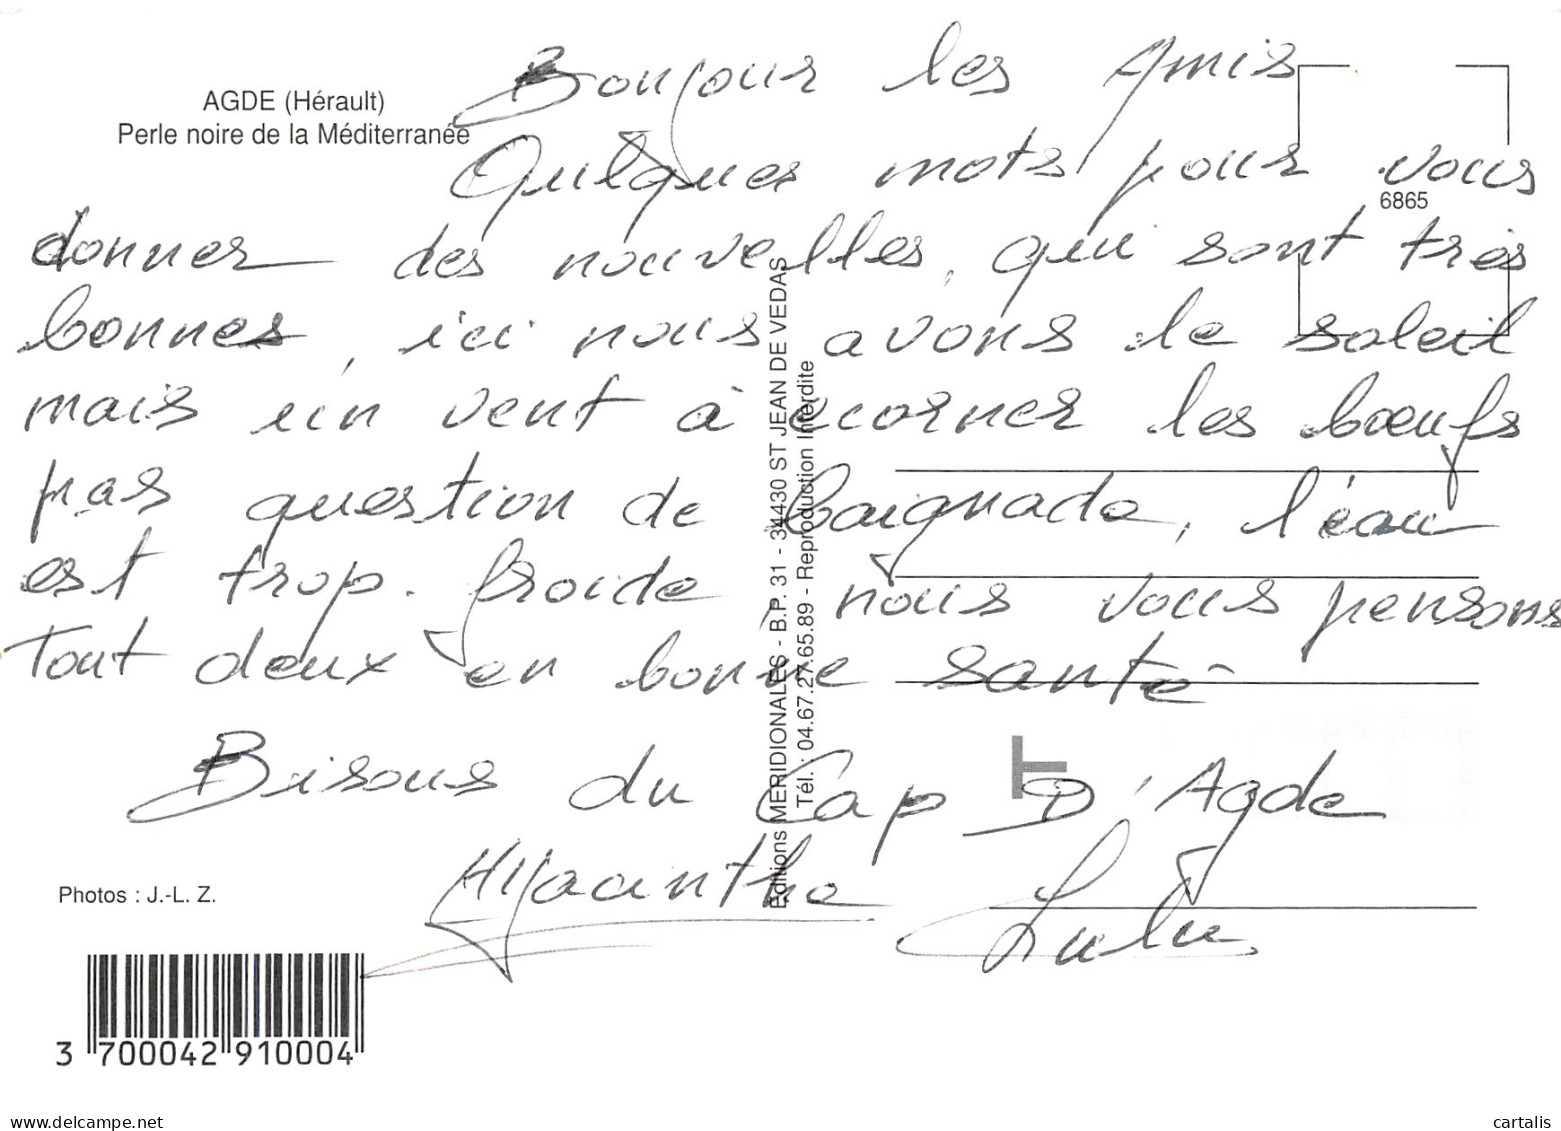 AGDE (Hérault)
Perle noire de la Méditerranée
Bonjour les Amis
Quelques mots pour vous
6865
donner des nouvelles, qui sont très
bonnes, ici nous avons le soleil
mais un vent à écorner les bœufs
pas question de baignade, l'eau
est trop. froide, nous vous pensons
Tout deux en bonne santé
Bisous du Cap D'Agde
Hyacinthe Lulu
Editions MERIDIONALES - B.P. 31 - 34430 ST JEAN DE VEDAS
Tél. : 04.67.27.65.89 - Reproduction Interdite
T
Photos : J.-L. Z.
3 700042 910004
www.delcampe.net
cartalis